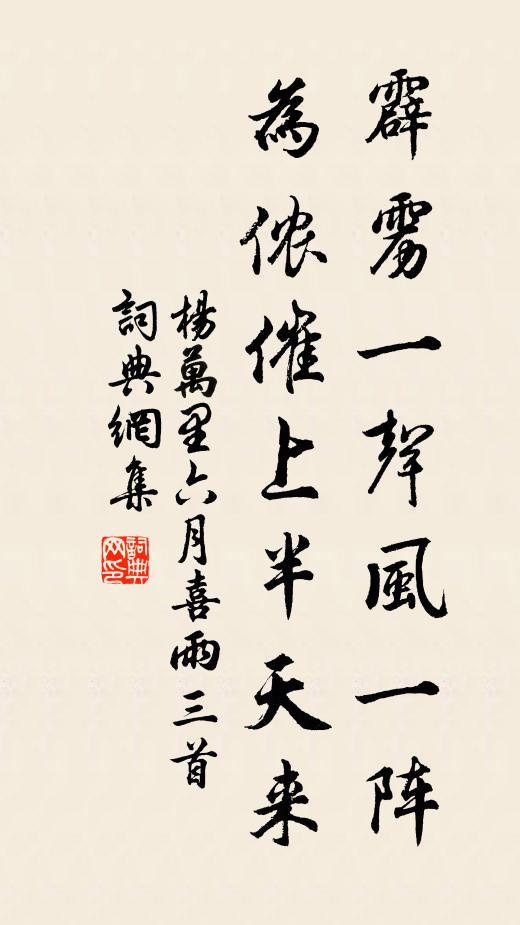 霹雳一聲風一阵
為侬催上半天来
楊萬里六月喜雨三首
詞典網集
詞典网印